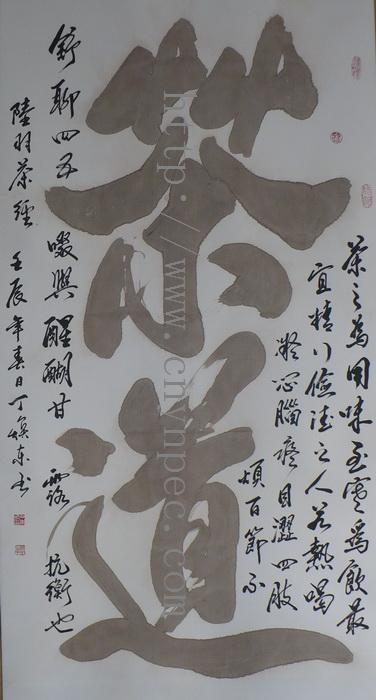 茶道
茶之為用味至寒為飲最
宜精行儉德之人若熱渴
凝悶腦疼目澀四肢
煩百節不
舒聊四五啜與醍醐甘露抗衡也
陸羽茶經 壬辰年春日丁煥东书
http://www.cnynpec.com